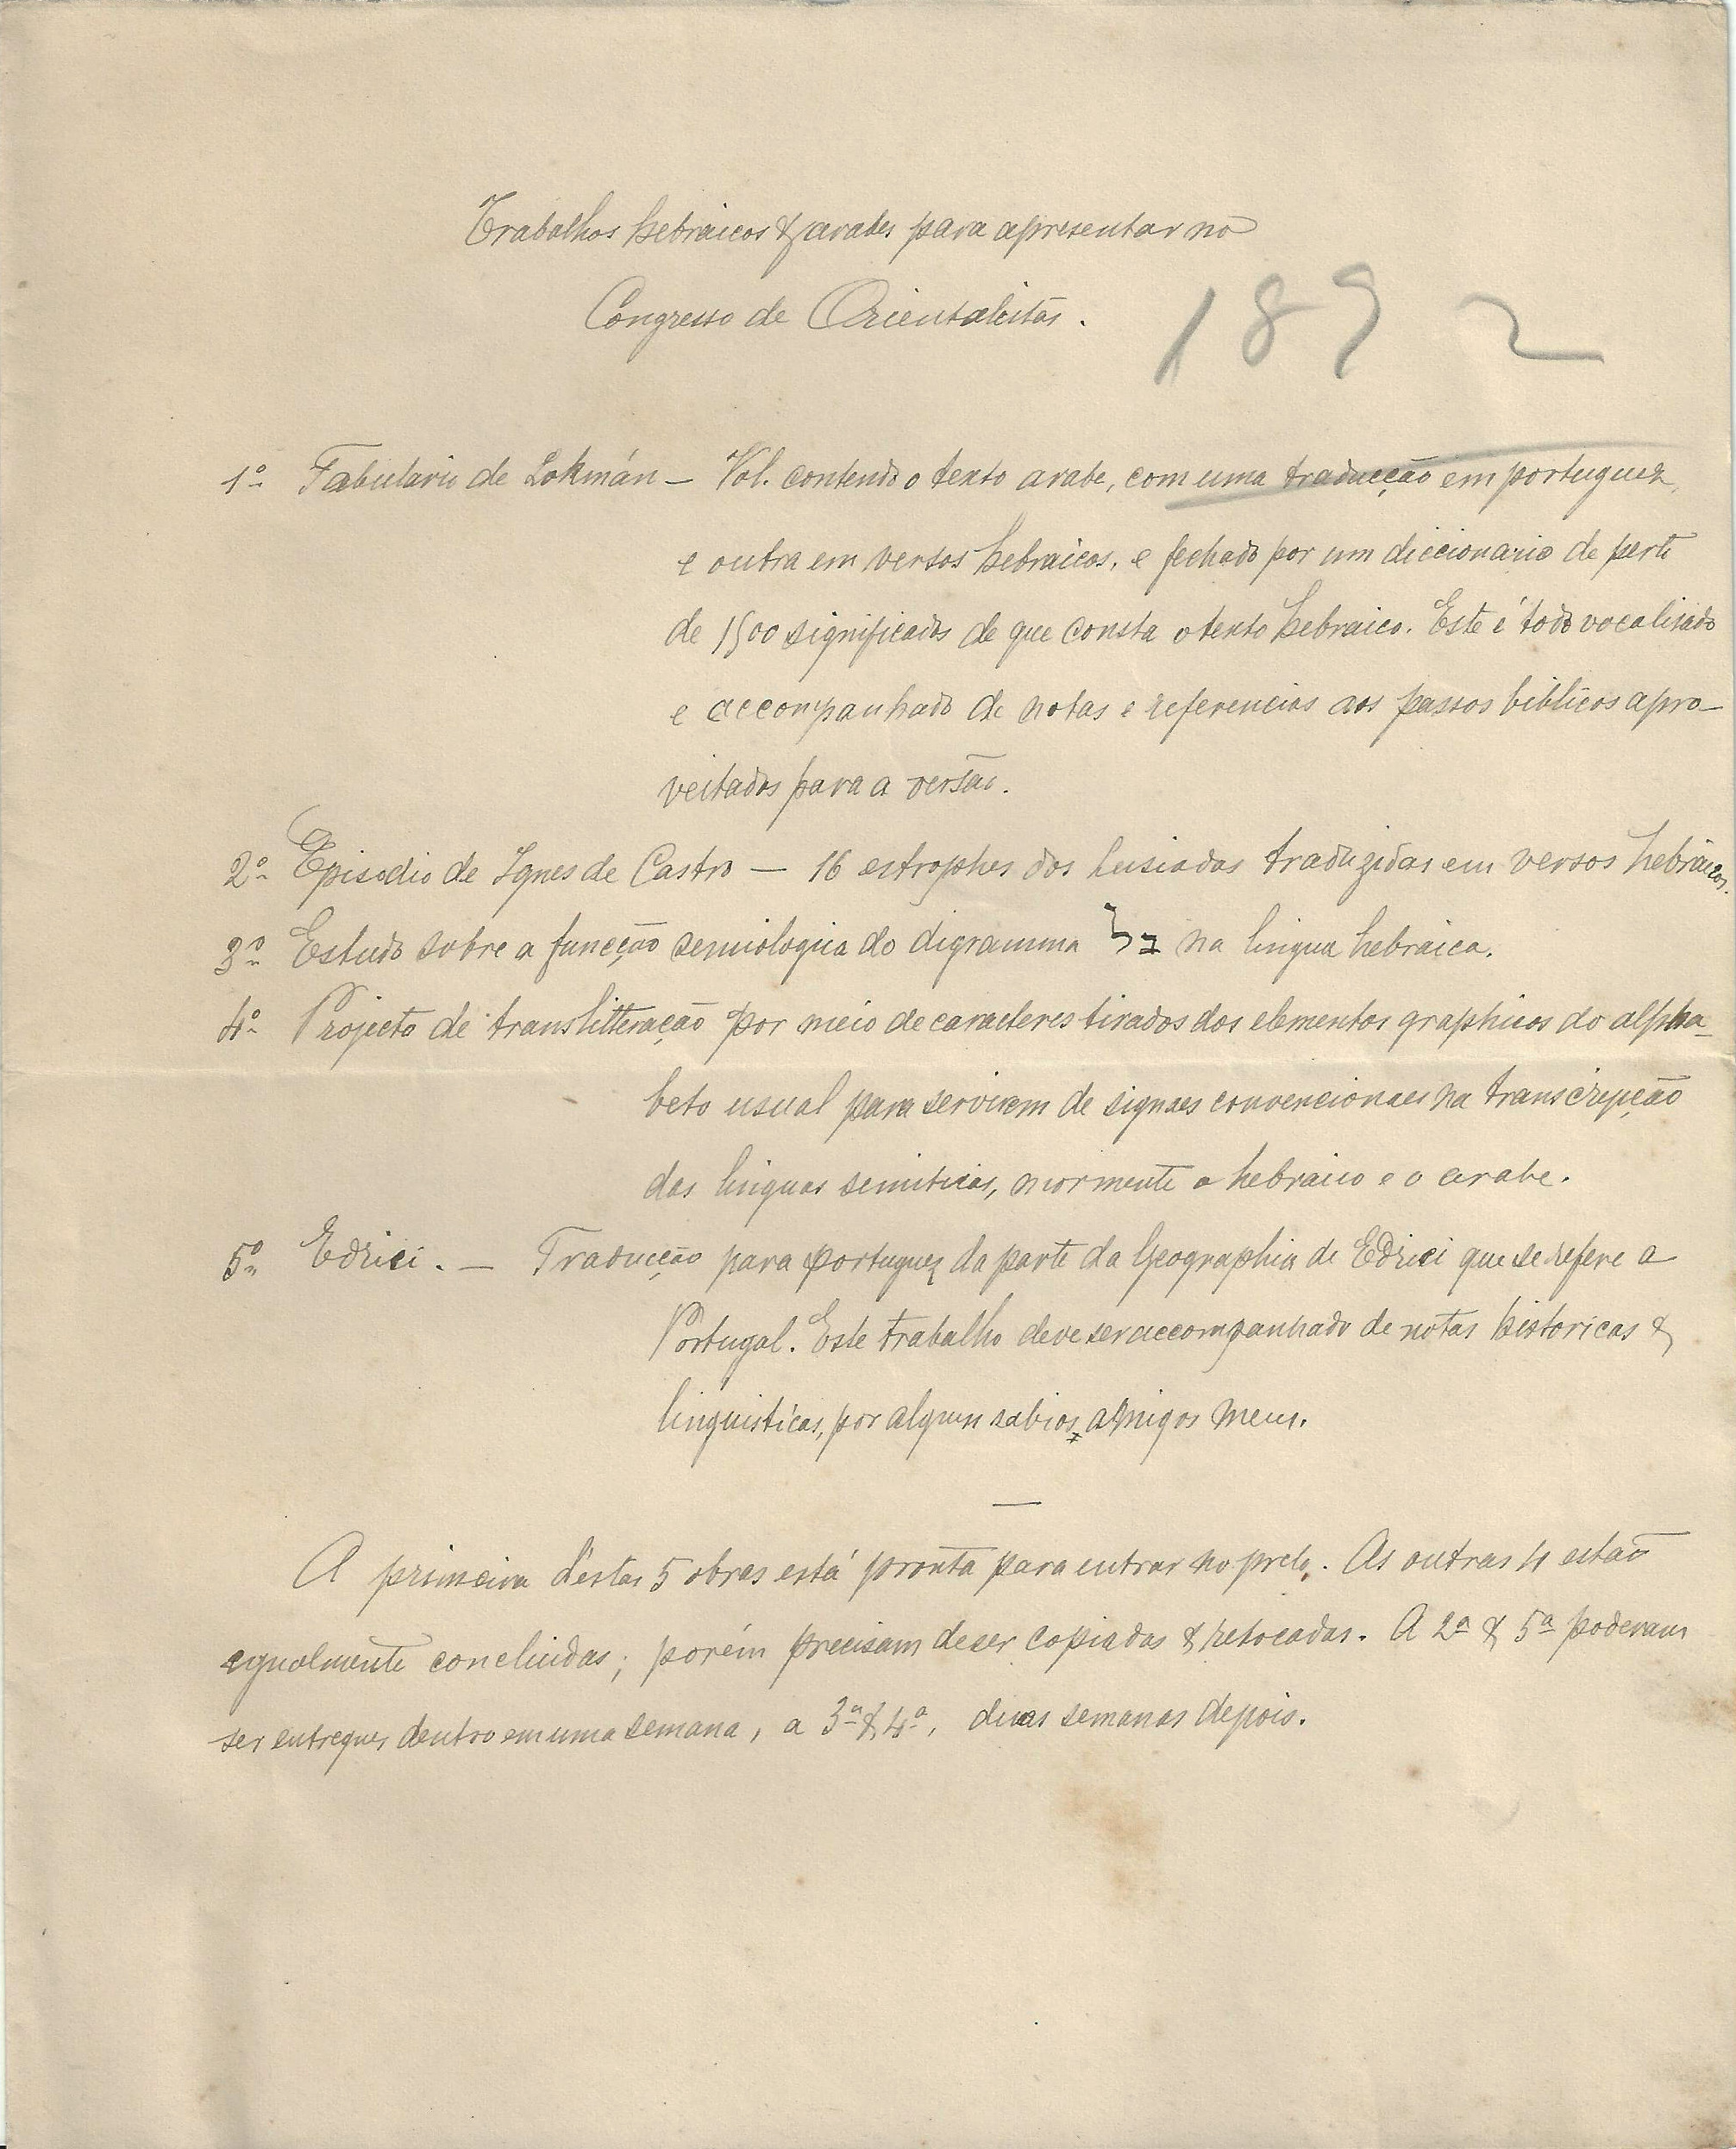 Trabalhos hebraicos & arabes para apresentar no
Congresso de Orientalistas.
1892
1º Fabulario de Lokmán — Vol. contendo o texto arabe, com uma traducção em portuguez,
e outra em versos hebraicos, e fechado por um diccionario de perto
de 1500 significados de que consta o texto hebraico. Este é todo vocalisado
e accompanhado de notas e referencias aos passos biblicos apro-
veitados para a versão.
2º Episodio de Ignes de Castro — 16 estrophes dos Lusiadas traduzidas em versos hebraicos.
3º Estudo sobre a funcção semiologica do digramma לב na lingua hebraica.
4º Projecto de translitteração por meio de caracteres tirados dos elementos graphicos do alpha-
beto usual para servirem de signaes convencionaes na transcripção
das linguas semiticas, mormente o hebraico e o arabe.
5º Edrici. — Traducção para portuguez da parte da Geographia de Edrici que se refere a
Portugal. Este trabalho deve ser accompanhado de notas historicas &
linguisticas, por alguns sabios, amigos meus.
—
A primeira d'estas 5 obras está prompta para entrar no prelo. As outras 4 estão
egualmente concluidas; porém precisam de ser copiadas & retocadas. A 2ª & 5ª poderam
ser entregues dentro em uma semana, a 3ª & 4ª, duas semanas depois.